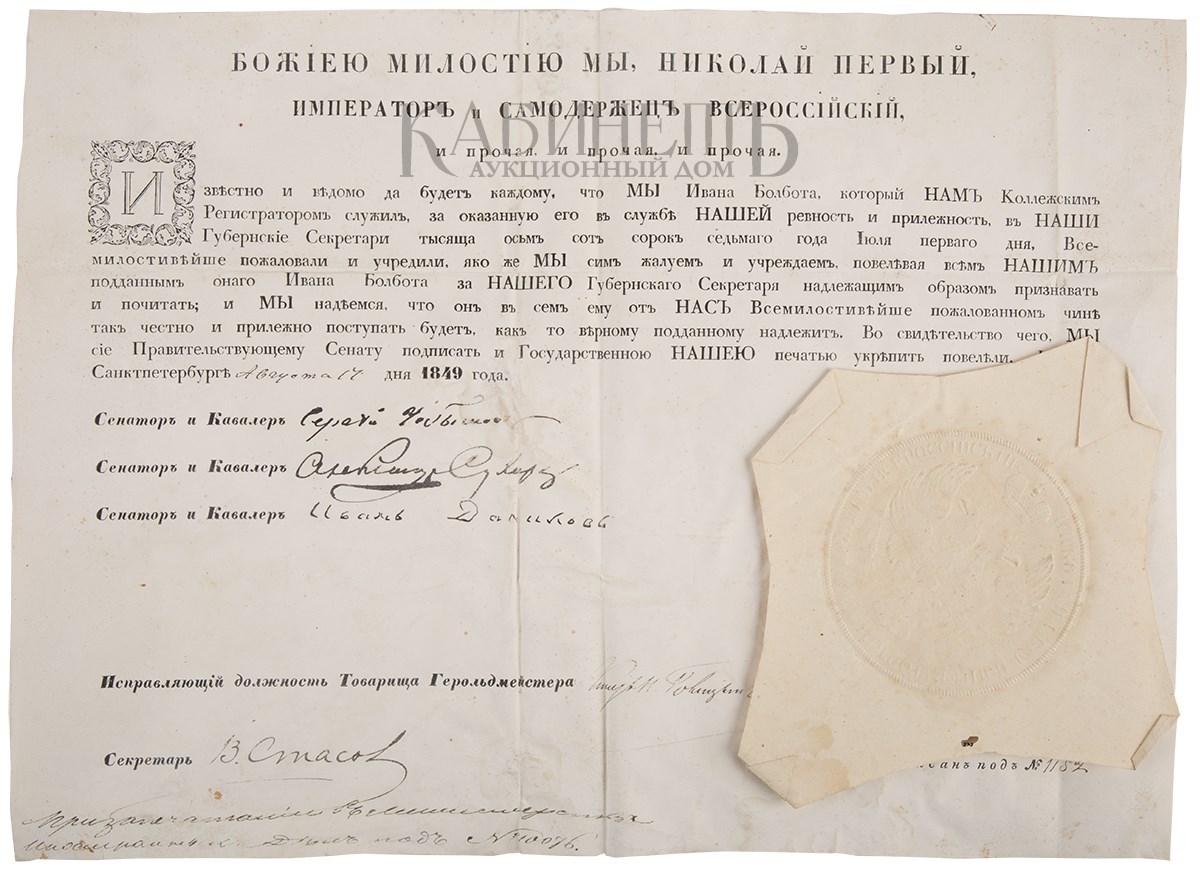 БОЖІЕЮ МИЛОСТІЮ МЫ, НИКОЛАЙ ПЕРВЫЙ,
ИМПЕРАТОРЪ и САМОДЕРЖЕЦЪ ВСЕРОССІЙСКІЙ,
КАБИНЕТЪ
и прочая, и прочая, и прочая.
АУКЦИОННЫЙ ДОМ
Извѣстно и вѣдомо да будетъ каждому, что МЫ Ивана Болбота, который НАМЪ Коллежским
Регистратором служил, за оказанную его въ службѣ НАШЕЙ ревность и прилежность, въ НАШИ
Губернскіе Секретари тысяща осьмъ сотъ сорокъ седьмаго года Іюля перваго дня, Все-
милостивѣйше пожаловали и учредили, яко же МЫ симъ жалуемъ и учреждаемъ, повелѣвая всѣмъ НАШИМЪ
подданнымъ онаго Ивана Болбота за НАШЕГО Губернскаго Секретаря надлежащимъ образомъ признавать
и почитать; и МЫ надѣемся, что онъ въ семъ ему отъ НАСЪ Всемилостивѣйше пожалованномъ чинѣ
такъ честно и прилежно поступать будетъ, какъ то вѣрному подданному надлежитъ. Во свидѣтельство чего, МЫ
сіе Правительствующему Сенату подписать и Государственною НАШЕЮ печатью укрѣпить повелѣли.
Санктпетербургѣ Августа 17 дня 1849 года.
Сенаторъ и Кавалеръ Сергѣй
Сенаторъ и Кавалеръ Александръ
Сенаторъ и Кавалеръ Иванъ Даниловъ
Исправляющій должность Товарища Герольдмейстера
Секретарь В. Стасов
под № 1182
При запечатаніи въ Министерствѣ
Иностранныхъ Дѣлъ подъ № 10076.